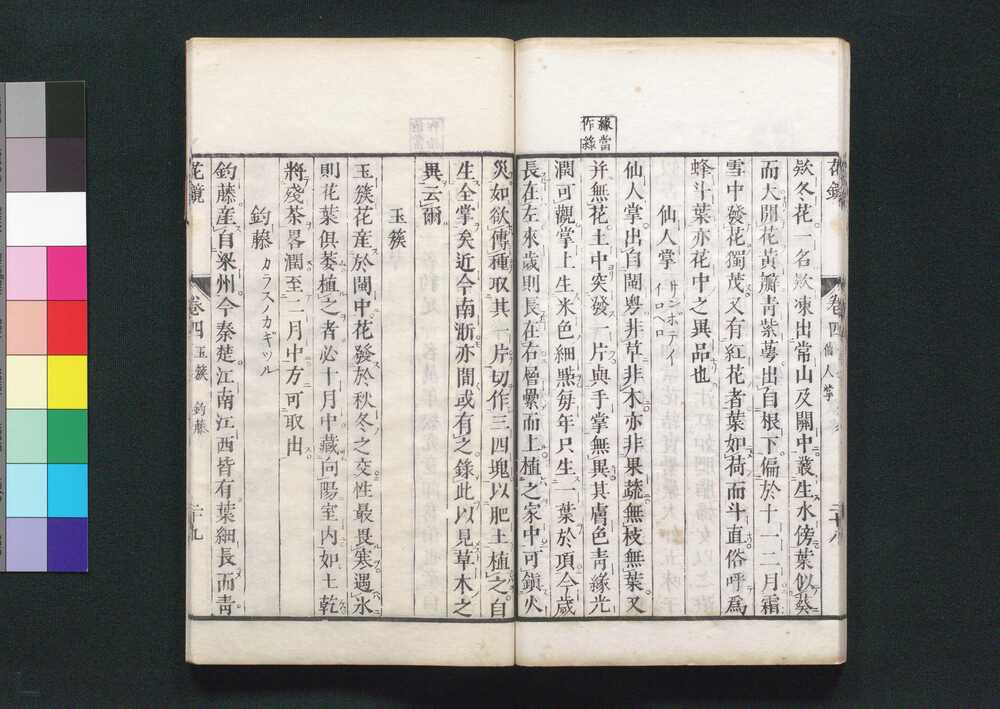 緣當
作綠
花鏡 卷四 仙人掌 二十八
欵冬花一名欵凍出常山及關中叢生水傍葉似葵
而大開花黃瓣青紫萼出自根下偏於十一二月霜
雪中發花獨茂又有紅花者葉如荷而斗直俗呼爲
蜂斗葉亦花中之異品也
仙人掌 サンボテイ イロヘロ
仙人掌出自閩粤非草非木亦非果蔬無枝無葉又
并無花土中突發一片與手掌無異其膚色青緣光
潤可觀掌上生米色細點每年只生一葉於頂今歲
長在左來歲則長在右層纍而上植之家中可鎮火
災如欲傳種取其一片切作三四塊以肥土植之自
生全掌矣近今南浙亦間或有之錄此以見草木之
異云爾
玉簇
玉簇花産於閩中花發於秋冬之交性最畏寒遇氷
則花葉俱萎植之者必十月中藏向陽室内如土乾
將殘茶畧潤至二月中方可取出
釣藤 カラスノカギツル
釣藤産自梁州今秦楚江南江西皆有葉細長而靑
花鏡 卷四 玉簇 釣藤 二十九